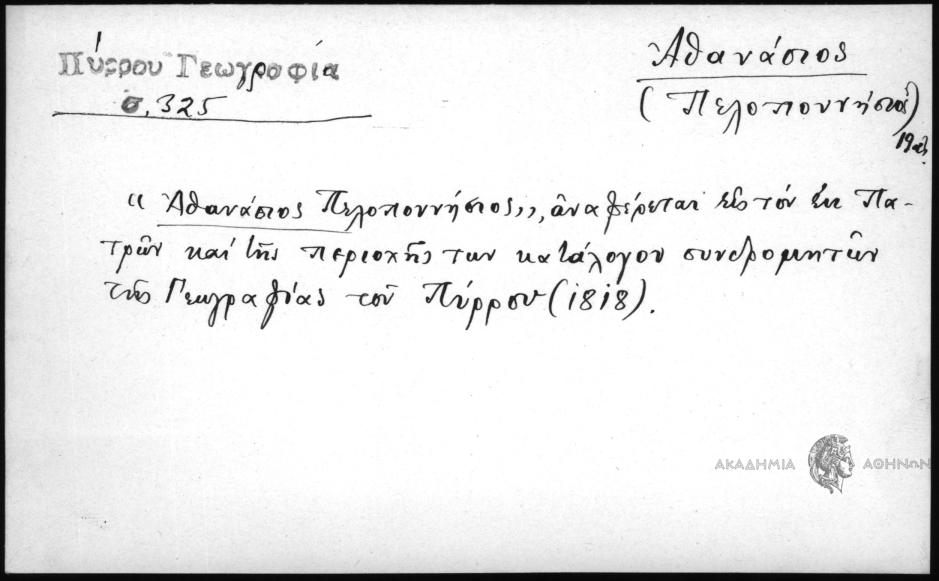 Πύρρου Γεωγραφία
σ. 325
Ἀθανάσιος
(Πελοποννήσιος)
19 αἰ.
“Ἀθανάσιος Πελοποννήσιος„, ἀναφέρεται εἰς τόν ἐκ Πα-
τρῶν καί τῆς περιοχῆς των κατάλογον συνδρομητῶν
τῆς Γεωγραφίας τοῦ Πύρρου (1818).
ΑΚΑΔΗΜΙΑ ΑΘΗΝΩΝ